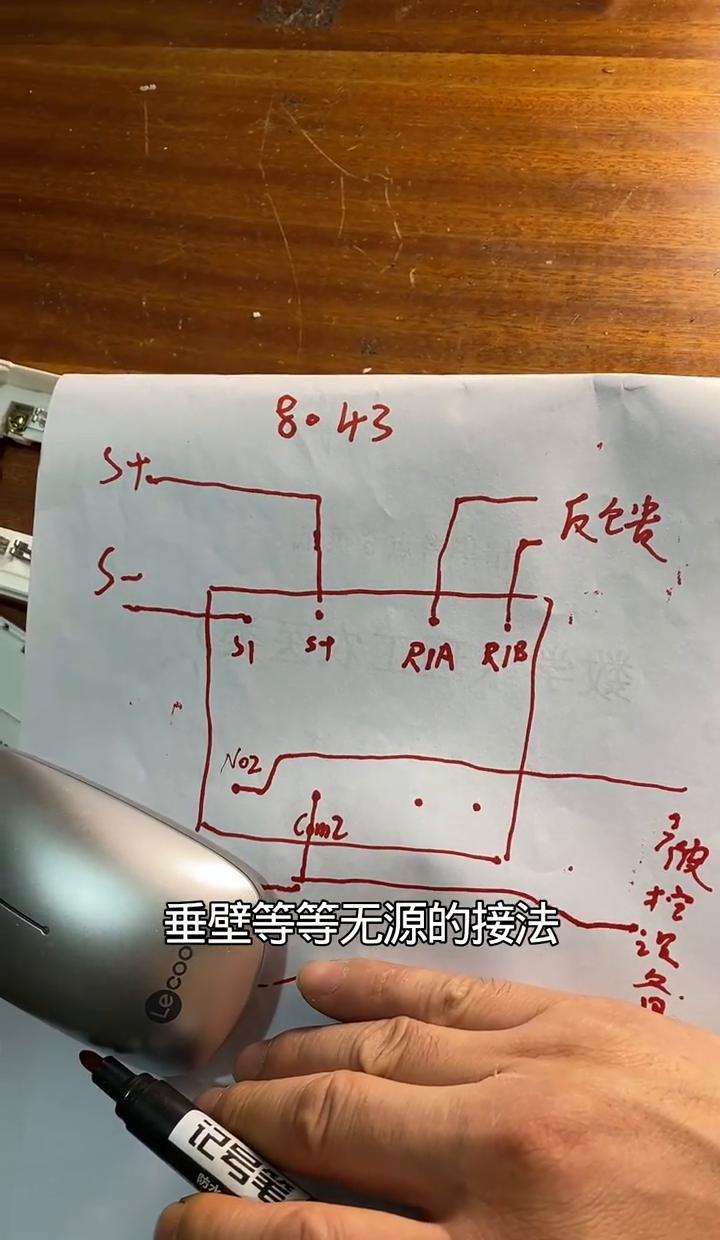 8.43
S+
反馈
S-
S1 S+ R1A R1B
No2
Com2
被
控
设
备
垂壁等等无源的接法
Lecoo
记号笔
防水